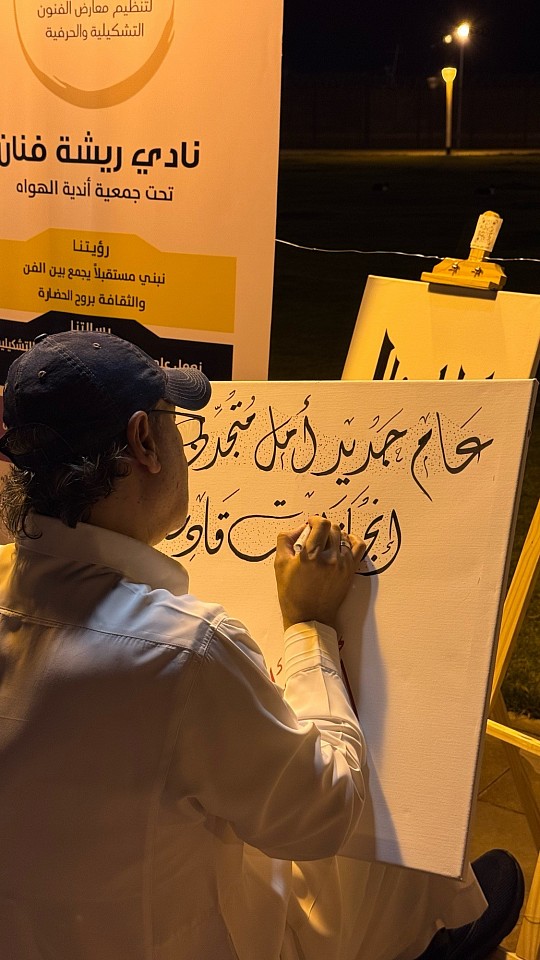 لتنظيم معارض الفنون
التشكيلية والحرفية
نادي ريشة فنان
تحت جمعية أندية الهواه
رؤيتنا
نبني مستقبلاً يجمع بين الفن
والثقافة بروح الحضارة
رسالتنا
عَام جَدِيد أَمل مُتجدّد